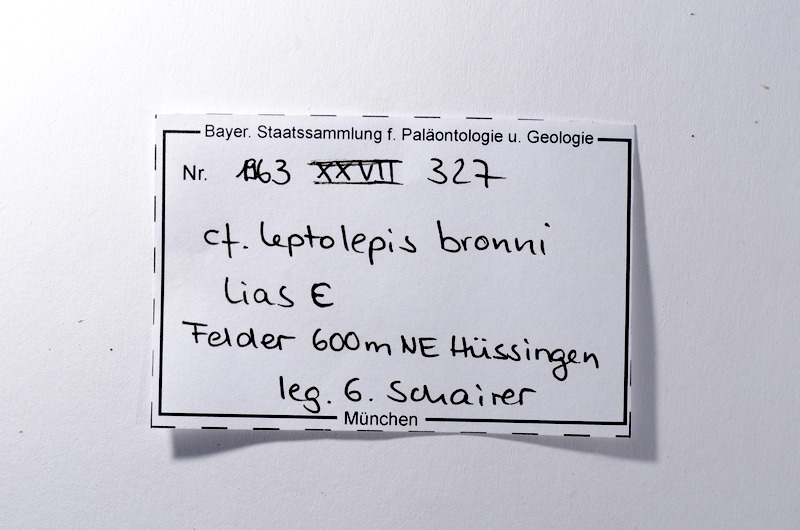 Bayer. Staatssammlung f. Paläontologie u. Geologie
Nr. 1963 XXVII 327
cf. leptolepis bronni
Lias Є
Felder 600m NE Hüssingen
leg. G. Schairer
München